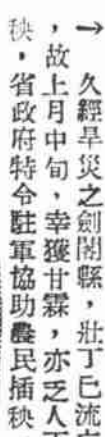 →　久經旱災之劍閣縣，壯丁已流
，故上月中旬，幸獲甘霖，亦乏人
秧，省政府特令駐軍協助農民插秧